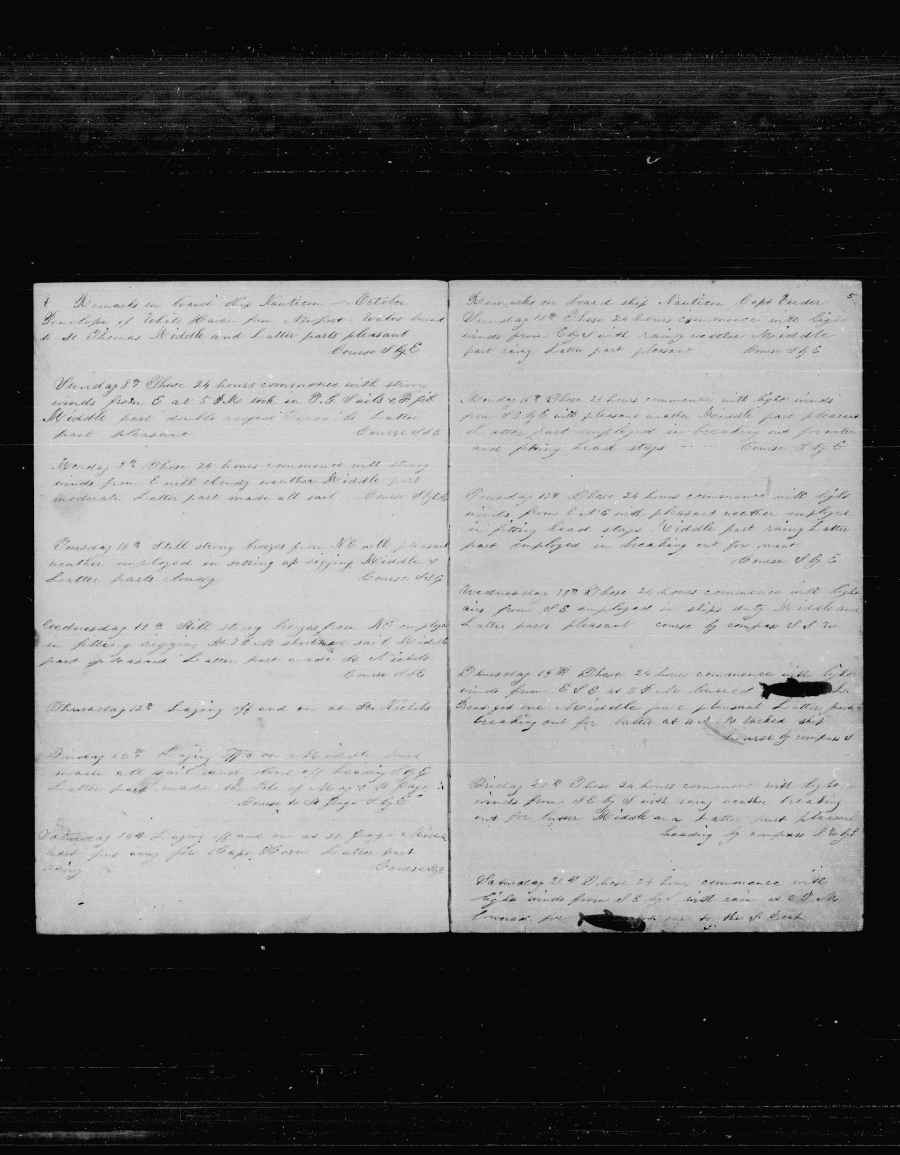 4 Remarks on board Ship Nauticon October
Penelope of White Haven from Newport Wales bound
to St Thomas Middle and Latter parts pleasant
Course S by E
Sunday 8th These 24 hours commence with strong
winds from E at 5 PM took in T. G. Sails & F. jib
Middle part double reefed Latter
part pleasant Course S S E
Monday 9th These 24 hours commence with strong
winds from E with cloudy weather Middle part
moderate Latter part made all sail Course S by E
Tuesday 10th Still strong breezes from N E with pleasant
weather employed in setting up rigging Middle &
Latter parts cloudy Course S S E
Wednesday 11th Still strong breezes from N E employed
in fitting rigging At 7 P M shortened sail Middle
part pleasant Latter part made St Nichols
Course S S E
Thursday 12th Laying off and on at St Nichols
Friday 13th Laying off & on Middle part
made all sail and stood off heading S by E
Latter part made the Isle of Mayo & St Jago
Course to St Jago S by E
Saturday 14th Laying off and on at St Jago Middle
part for Cape Horn Latter part
rainy Course S by E
Remarks on board ship Nauticon Capt 5
Sunday 15th These 24 hours commence with light
winds from E by S with rainy weather Middle
part rainy Latter part pleasant Course S by E
Monday 16th These 24 hours commence with light winds
from S E by E with pleasant weather Middle part pleasant
Latter part employed in breaking out for water
and fitting head stays Course S by E
Tuesday 17th These 24 hours commence with light
winds from E N E with pleasant weather employed
in fitting head stays Middle part rainy Latter
part employed in breaking out for meat
Course S by E
Wednesday 18th These 24 hours commence with light
airs from S E employed in ships duty Middle and
Latter parts pleasant course by compass S S W
Thursday 19th These 24 hours commence with light
winds from E S E at 3 P M lowered
one Middle part pleasant Latter part
breaking out for water at 11 A M tacked ship
Course by compass S
Friday 20th These 24 hours commence with light
winds from S E by S with rainy weather breaking
out for water Middle and Latter part pleasant
heading by compass S W by S
Saturday 21st These 24 hours commence with
light winds from S E by S with rain at 6 P M
lowered for one to the S Boat